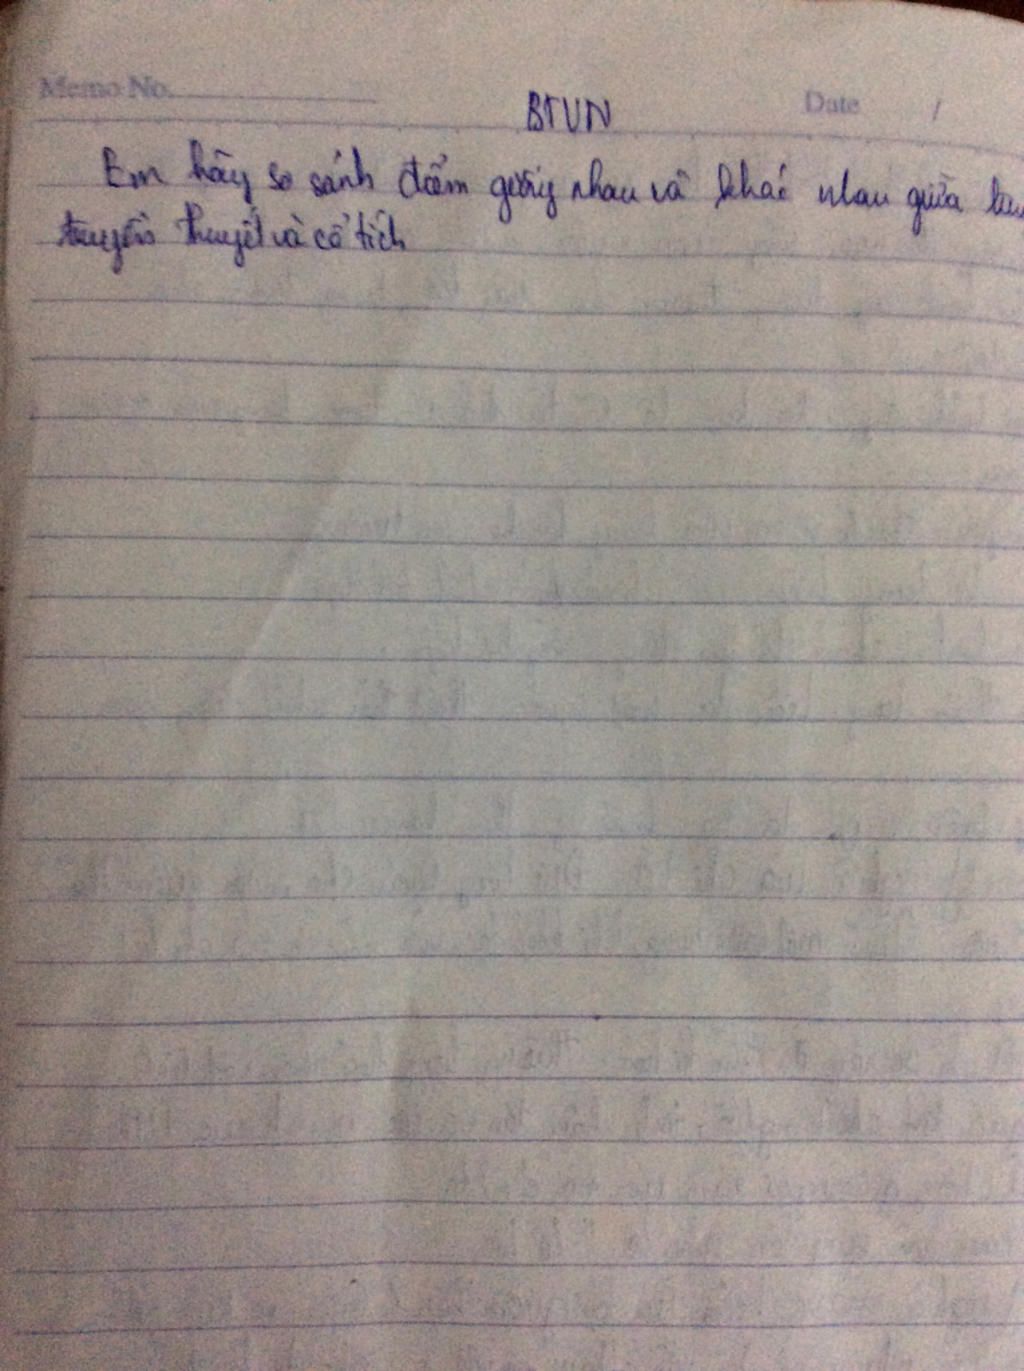 Memo No.
Date /
BTVN
Em hãy so sánh điểm giống nhau và khác nhau giữa
truyền thuyết và cổ tích